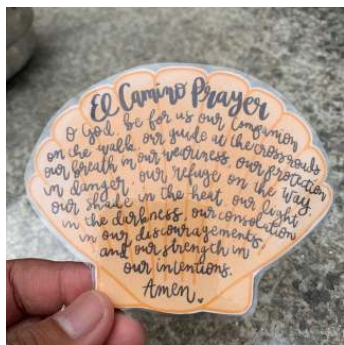 El Camino Prayer
O God be for us our Companion
on the walk, our guide at the crossroads
our breath in our weariness, our protection
in danger, our refuge on the way,
our shade in the heat, our light
in the darkness, our consolation
in our discouragements,
and our strength in
our intentions.
Amen.